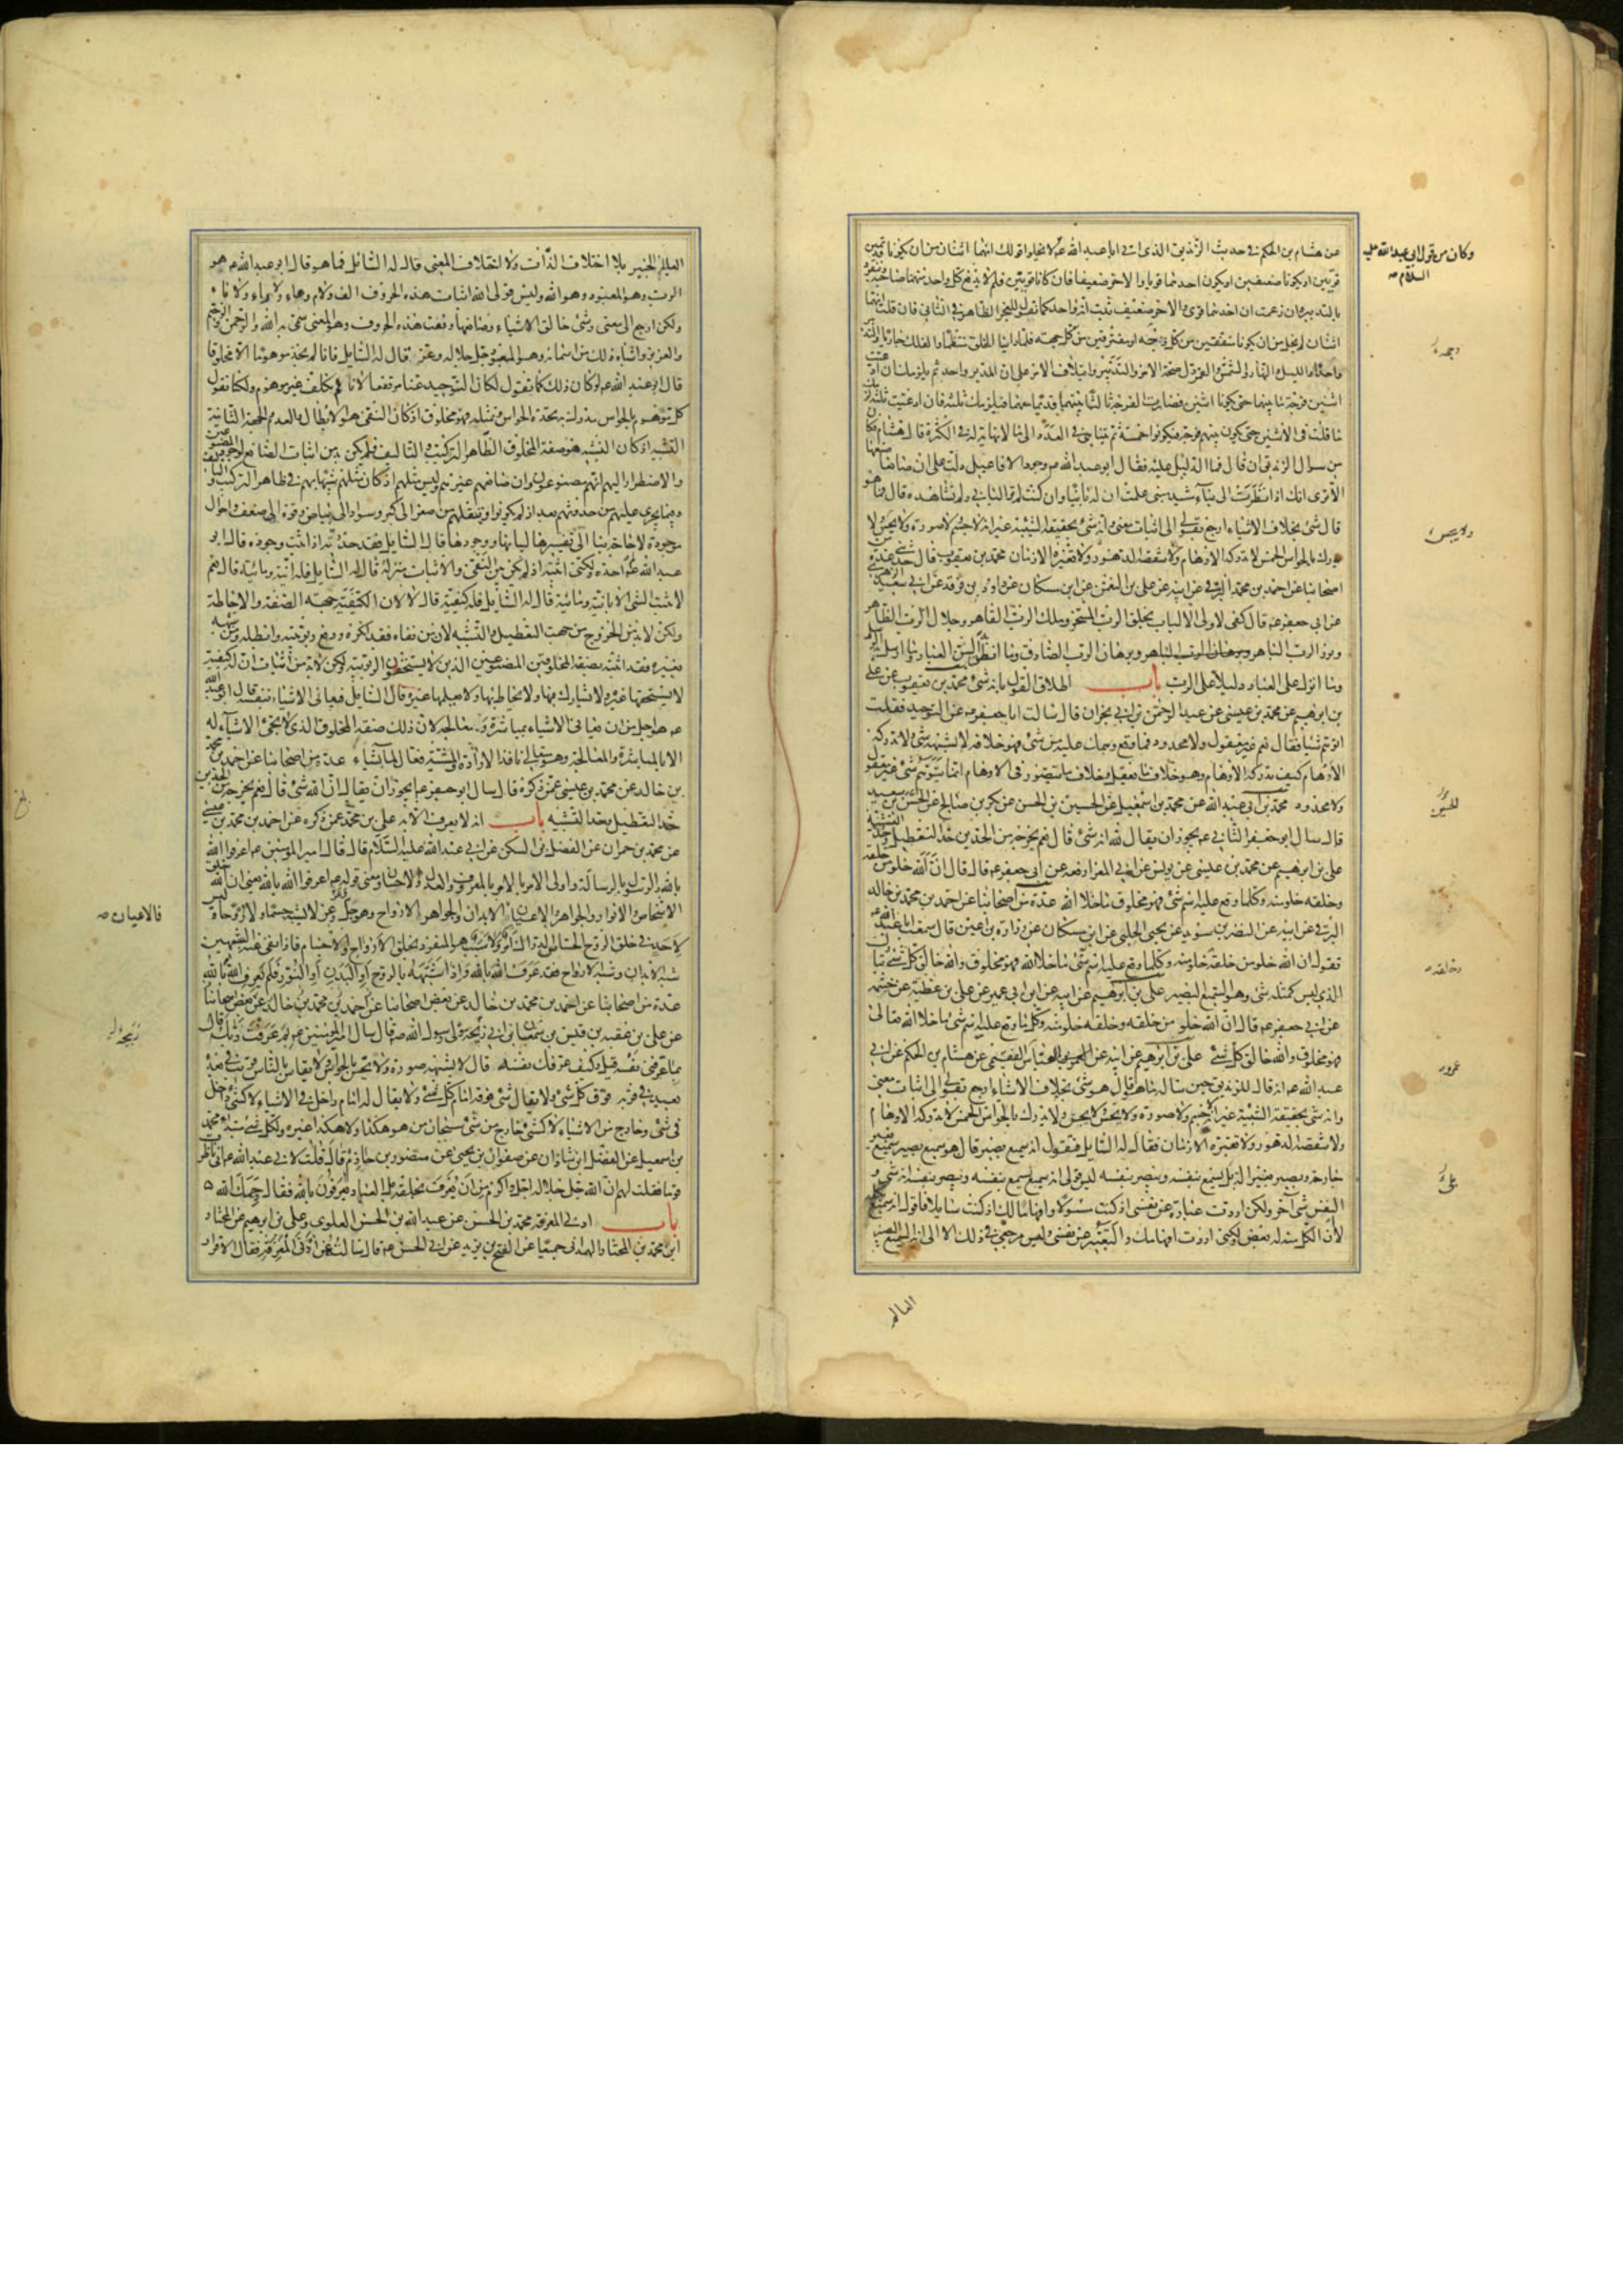 عن هشام بن الحكم في حديث الزنديق الذي اتى ابا عبد الله عم لا يخلو قولك انهما اثنان من ان يكونا قديمين
قويين او يكونا ضعيفين او يكون احدهما قويا والاخر ضعيفا فان كانا قويين فلم لا يدفع كل واحد منهما صاحبه ويتفرد
بالتدبير وان زعمت ان احدهما قوى والاخر ضعيف ثبت انه واحد كما نقول للعجز الظاهر في الثاني فان قلت انهما
اثنان لم يخل من ان يكونا متفقين من كل وجه او مفترقين من كل جهة فلما راينا الخلق منتظما والفلك جاريا والتدبير
واحدا والليل والنهار والشمس والقمر دل صحة الامر والتدبير وايتلاف الامر على ان المدبر واحد ثم يلزمك ان ادعيت
اثنين فرجة ما بينهما حتى يكونا اثنين فصارت الفرجة ثالثا بينهما قديما معهما فيلزمك ثلثة فان ادعيت ثلثة لزمك
ما قلت في الاثنين حتى يكون بينهم فرجة فيكونوا خمسة ثم يتناهى في العدد الى ما لا نهاية له في الكثرة قال هشام فكان
من سوال الزنديق ان قال فما الدليل عليه فقال ابو عبد الله عم وجود الافاعيل دلت على ان صانعا صنعها
الا ترى انك اذا نظرت الى بناء مشيد مبنى علمت ان له بانيا وان كنت لم تر الباني ولم تشاهده قال فما هو
قال شئ بخلاف الاشياء ارجع بقولى الى اثبات معنى وانه شئ بحقيقة الشيئية غير انه لا جسم ولا صورة ولا يحس ولا
يدرك بالحواس الخمس لا تدركه الاوهام ولا تنقصه الدهور ولا تغيره الازمان محمد بن يعقوب قال حدثني عدة من
اصحابنا عن احمد بن محمد البرقي عن ابيه عن على بن النعمن عن ابن مسكان عن داود بن فرقد عن ابى سعيد الزهري
عن ابى جعفر عم قال كفى لاولى الالباب بخلق الرب المسخر وملك الرب القاهر وجلال الرب الظاهر
ونور الرب الباهر وبرهان الرب الصادق وما انطق به السن العباد وما ارسل به الرسل
وما انزل على العباد دليلا على الرب باب اطلاق القول بانه شئ محمد بن يعقوب عن على
بن ابرهيم عن محمد بن عيسى عن عبد الرحمن بن ابى نجران قال سالت ابا جعفر عم عن التوحيد فقلت
اتوهم شيئا فقال نعم غير معقول ولا محدود فما وقع وهمك عليه من شئ فهو خلافه لا يشبهه شئ ولا تدركه
الاوهام كيف تدركه الاوهام وهو خلاف ما يعقل وخلاف ما يتصور في الاوهام انما يتوهم شئ غير معقول
ولا محدود محمد بن ابى عبد الله عن محمد بن اسمعيل عن الحسين بن الحسن عن بكر بن صالح عن الحسن بن سعيد
قال سال ابو جعفر الثاني عم يجوز ان يقال لله انه شئ قال نعم يخرجه من الحدين حد التعطيل وحد التشبيه
على بن ابرهيم عن محمد بن عيسى عن يونس عن ابى المغرا رفعه عن ابى جعفر عم قال قال ان الله خلو من خلقه
وخلقه خلو منه وكلما وقع عليه اسم شئ فهو مخلوق ما خلا الله عدة من اصحابنا عن احمد بن محمد بن خالد
البرقي عن ابيه عن النضر بن سويد عن يحيى الحلبي عن ابن مسكان عن زرارة بن اعين قال سمعت ابا عبد الله عم
يقول ان الله خلو من خلقه وخلقه خلو منه وكلما وقع عليه اسم شئ ما خلا الله فهو مخلوق والله خالق كل شئ تبارك
الذي ليس كمثله شئ وهو السميع البصير على بن ابرهيم عن ابيه عن ابن ابى عمير عن على بن عطية عن خيثمة
عن ابى جعفر عم قال ان الله خلو من خلقه وخلقه خلو منه وكلما وقع عليه اسم شئ ما خلا الله تعالى
فهو مخلوق والله خالق كل شئ على بن ابرهيم عن ابيه عن العباس الفقيمي عن هشام بن الحكم عن ابى
عبد الله عم انه قال للزنديق حين ساله ما هو قال هو شئ بخلاف الاشياء ارجع بقولي الى اثبات معنى
وانه شئ بحقيقة الشيئية غير انه لا جسم ولا صورة ولا يحس ولا يجس ولا يدرك بالحواس الخمس لا تدركه الاوهام
ولا تنقصه الدهور ولا تغيره الازمان فقال له السايل فتقول انه سميع بصير قال هو سميع بصير سميع بغير
جارحة وبصير بغير الة بل يسمع بنفسه ويبصر بنفسه ليس قولى انه سميع يسمع بنفسه وبصير يبصر بنفسه انه شئ و
النفس شئ آخر ولكن اردت عبارة عن نفسي اذ كنت مسئولا وافهاما لك اذ كنت سايلا فاقول انه سميع بكله
لا ان الكل منه له بعض ولكني اردت افهامك والتعبير عن نفسي وليس مرجعي في ذلك الا الى انه السميع البصير
العالم
وكان من قول ابى عبد الله عليه
السلام
العالم الخبير بلا اختلاف الذات ولا اختلاف المعنى قال له السائل فما هو قال ابو عبد الله عم هو
الرب وهو المعبود وهو الله وليس قولى الله اثبات هذه الحروف الف ولام وهاء ولا راء ولا باء
ولكن ارجع الى معنى وشئ خالق الاشياء وصانعها ونعت هذه الحروف وهو المعنى سمى به الله والرحمن والرحيم
والعزيز واشباه ذلك من اسمائه وهو المعبود جل جلاله وعز قال له السايل فانا لم نجد موهوما الا مخلوقا
قال ابو عبد الله عم لو كان ذلك كما تقول لكان التوحيد عنا مرتفعا لانا لم نكلف غير موهوم ولكنا نقول
كل موهوم بالحواس مدرك به تحده الحواس وتمثله فهو مخلوق اذ كان النفى هو الابطال والعدم والجهة الثانية
التشبيه اذ كان التشبيه هو صفة المخلوق الظاهر التركيب والتاليف فلم يكن بد من اثبات الصانع لوجود المصنوعين
والاضطرار اليهم انهم مصنوعون وان صانعهم غيرهم وليس مثلهم اذ كان مثلهم شبيها بهم في ظاهر التركيب والتاليف
وفيما يجرى عليهم من حدوثهم بعد اذ لم يكونوا وتنقلهم من صغر الى كبر وسواد الى بياض وقوة الى ضعف واحوال
موجودة لا حاجة بنا الى تفسيرها لبيانها ووجودها قال له السايل فقد حددته اذ اثبت وجوده قال ابو
عبد الله عم لم احده ولكني اثبته اذ لم يكن بين النفى والاثبات منزلة قال له السايل فله انية ومائية قال نعم
لا يثبت الشئ الا بانية ومائية قال له السايل فله كيفية قال لا لان الكيفية جهة الصفة والاحاطة
ولكن لا بد من الخروج من جهة التعطيل والتشبيه لان من نفاه فقد انكره ودفع ربوبيته وابطله ومن شبهه
بغيره فقد اثبته بصفة المخلوقين المصنوعين الذين لا يستحقون الربوبية ولكن لا بد من اثبات ان له كيفية
لا يستحقها غيره ولا يشارك فيها ولا يحاط بها ولا يعلمها غيره قال السايل فيعانى الاشياء بنفسه قال ابو عبد الله
عم هو اجل من ان يعانى الاشياء بمباشرة ومعالجة لان ذلك صفة المخلوق الذي لا تجئ الاشياء له
الا بالمباشرة والمعالجة وهو متعالي نافذ الارادة والمشية فعال لما يشاء عدة من اصحابنا عن احمد بن محمد
بن خالد عن محمد بن عيسى عمن ذكره قال سال ابو جعفر عم ايجوز ان يقال ان الله شئ قال نعم يخرجه من الحدين
حد التعطيل وحد التشبيه باب انه لا يعرف الا به على بن محمد عمن ذكره عن احمد بن محمد بن عيسى
عن محمد بن حمران عن الفضل بن السكن عن ابى عبد الله عليه السلام قال قال امير المومنين عم اعرفوا الله
بالله والرسول بالرسالة واولى الامر بالامر بالمعروف والعدل والاحسان ومعنى قوله عم اعرفوا الله بالله يعنى ان الله خلق
الاشخاص والانوار والجواهر والاعيان فالابدان والجواهر الارواح وهو جل وعز لا يشبه جسما ولا روحا وليس
لاحد في خلق الروح الحساس الدراك امر ولا سبب هو المتفرد بخلق الارواح والاجسام فاذا نفى عنه الشبهين
شبه الابدان وشبه الارواح فقد عرف الله بالله واذا شبهه بالروح او البدن او النور فلم يعرف الله بالله
عدة من اصحابنا عن احمد بن محمد بن خالد عن بعض اصحابنا
عن على بن عقبة بن قيس بن سمعان بن ابى ربيحة مولى رسول الله صم قال سال امير المومنين عم بم عرفت ربك قال
بما عرفني نفسه قيل وكيف عرفك نفسه قال لا يشبهه صورة ولا يحس بالحواس ولا يقاس بالناس قريب في بعده
بعيد في قربه فوق كل شئ ولا يقال شئ فوقه امام كل شئ ولا يقال له امام داخل في الاشياء لا كشئ داخل
في شئ وخارج من الاشياء لا كشئ خارج من شئ سبحان من هو هكذا ولا هكذا غيره ولكل شئ مبتدا محمد
بن اسمعيل عن الفضل ابن شاذان عن صفوان بن يحيى عن منصور بن حازم قال قلت لابى عبد الله عم انى ناظرت
قوما فقلت لهم ان الله جل جلاله اجل واكرم من ان يعرف بخلقه بل العباد يعرفون بالله فقال رحمك الله
باب ادنى المعرفة محمد بن الحسن عن عبد الله بن الحسن العلوى وعلى بن ابرهيم عن المختار
ابن محمد بن المختار الهمدانى جميعا عن الفتح بن يزيد عن ابى الحسن عم قال سالته عن ادنى المعرفة فقال الاقرار
فالاعيان